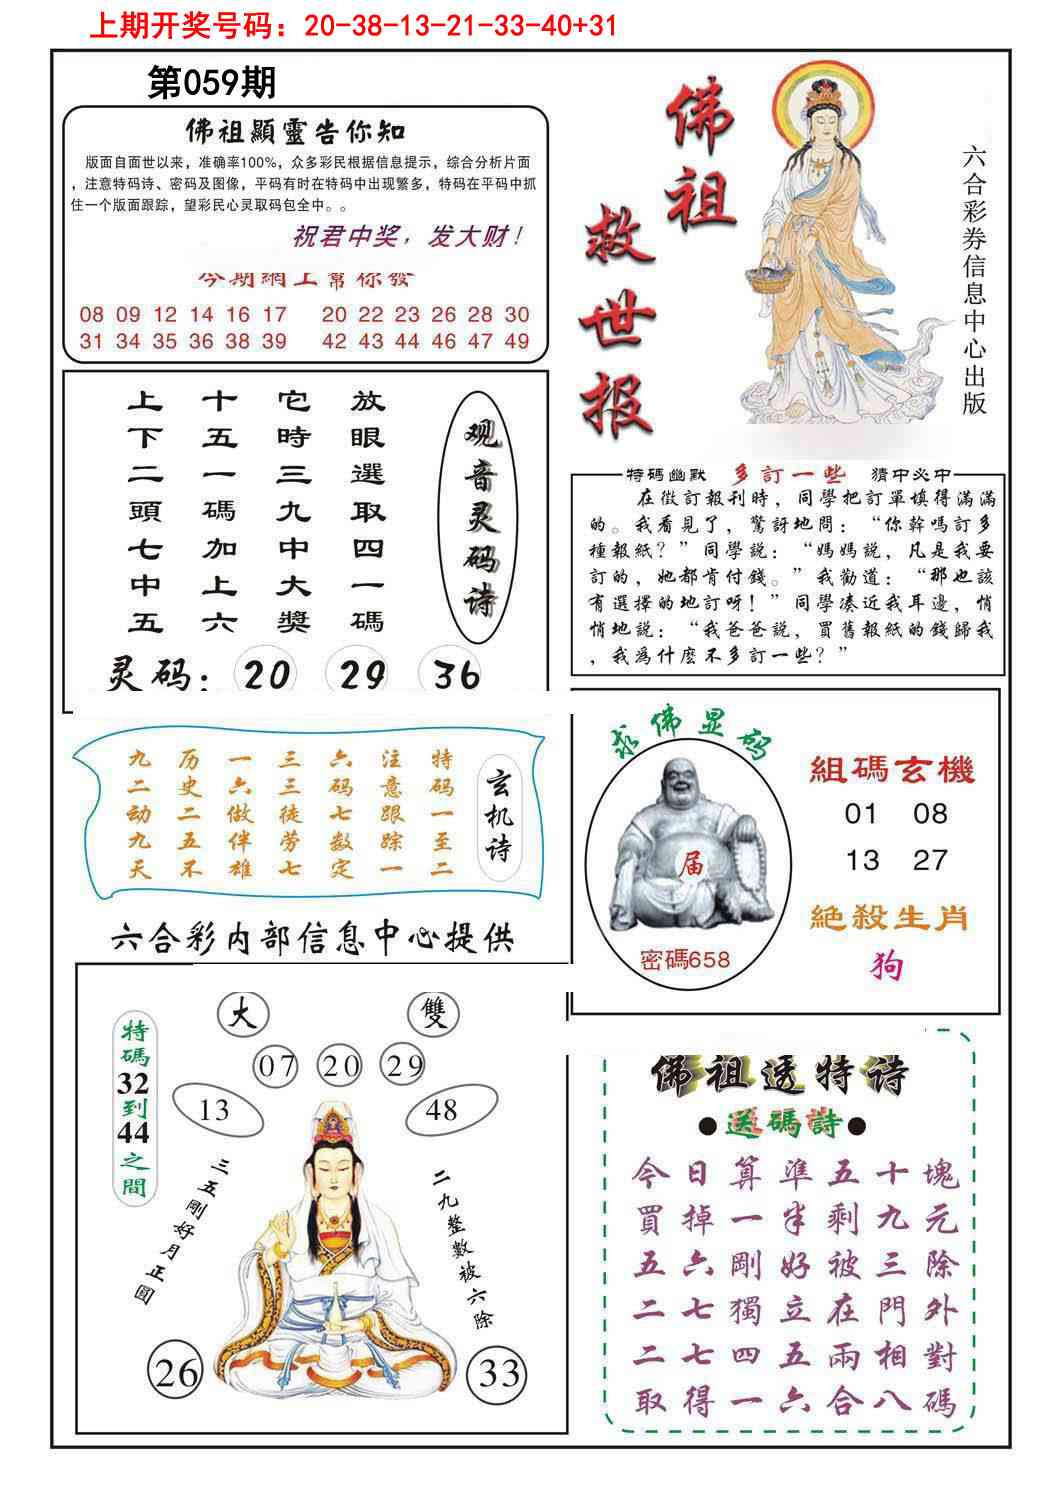 上期开奖号码：20-38-13-21-33-40+31
第059期
佛祖顯靈告你知
版面自面世以来，准确率100%，众多彩民根据信息提示，综合分析片面
，注意特码诗、密码及图像，平码有时在特码中出现繁多，特码在平码中抓
住一个版面跟踪，望彩民心灵取码包全中。。
祝君中奖，发大财！
今期網上幫你發
08 09 12 14 16 17 20 22 23 26 28 30
31 34 35 36 38 39 42 43 44 46 47 49
佛祖
救世报
六合彩券信息中心出版
放眼選取四一碼
它時三九中大獎
十五一碼加上六
上下二頭七中五
观音灵码诗
灵码：20 29 36
特碼幽默 多訂一些 猜中必中
在徵訂報刊時，同學把訂單填得滿滿
的。我看見了，驚訝地問：“你幹嗎訂多
種報紙？”同學説：“媽媽説，凡是我要
訂的，她都肯付錢。”我勸道：“那也該
有選擇的地訂呀！”同學凑近我耳邊，悄
悄地説：“我爸爸説，買舊報紙的錢歸我
，我爲什麽不多訂一些？”
玄机诗
特码一至二
注意跟踪一
六码七数定
三三徒劳七
一六做伴雄
历史二五不
九二动九天
求佛显码
届
密碼658
組碼玄機
01 08
13 27
絶殺生肖
狗
六合彩内部信息中心提供
特碼32到44之間
大 雙
07 20 29
13 48
三五剛好月正圓
二九整數被六除
26 33
佛祖透特诗
●送碼詩●
今日算準五十塊
買掉一半剩九元
五六剛好被三除
二七獨立在門外
二七四五兩相對
取得一六合八碼